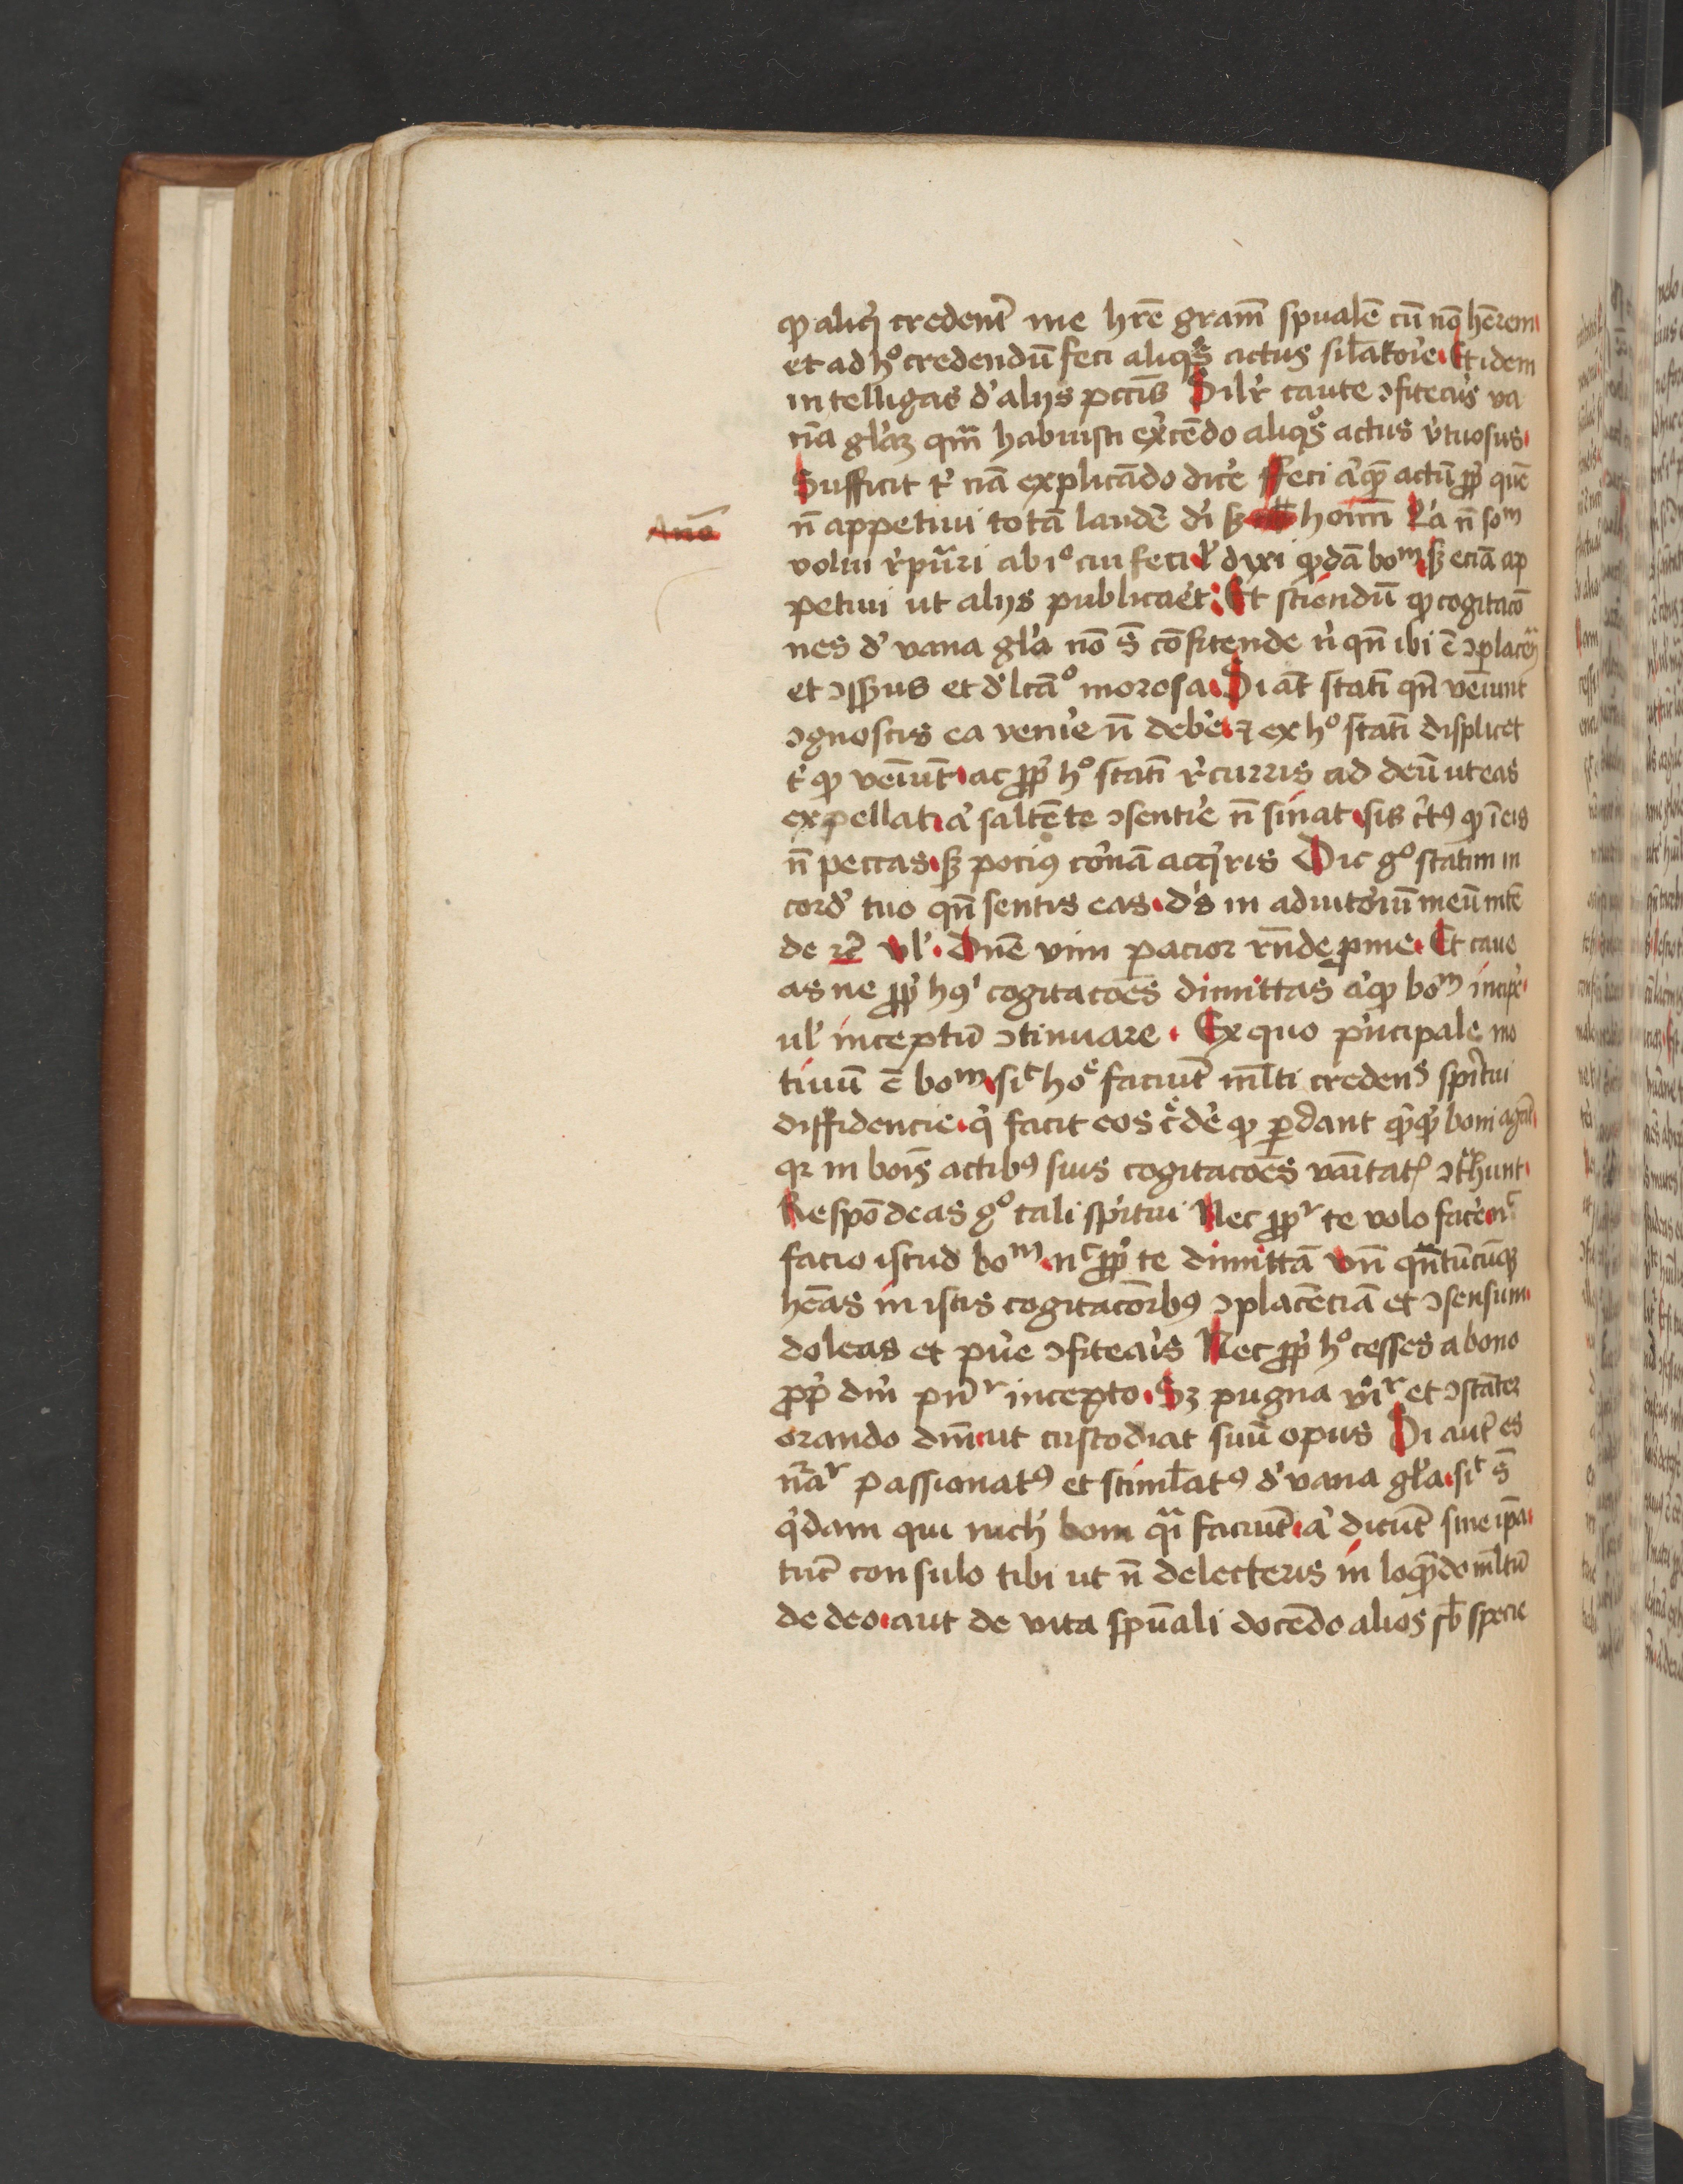 ꝙ aliqͥ credent᷑ me hr̄e gram̄ spualē cū nō hērem
et ad hͦ credendū feci aliqͦs actus sil̄atoꝛie Et idem
intelligas d' alijs pcc̄is Silr̕ caute ↄfiteaꝛ̕s va
nā gl̕aꝫ qm̄ habuisti ex̕cēdo aliqͦs actus v̕tuosus
Sufficit t̕ nā explicādo dice̕ ffeci a̕qͥ actū ꝓpt̕ quē
n̄ appetiui totā laudē di̕ sꝫ hoim̄ L̕a n̄ soᵐ
Ano
volui r̕pūri ab iͦ cui feci ł dixi qͦdā boᵐ sꝫ eciā ap
petiui ut alijs publicaet᷑ Et sciendū ꝙ cogitacō
nes d' vana gl̕a nō s̄ cōfitende n̕ qn̄ ibi ē ↄplacē
et ↄsēsus et d'lcāͦ morosa Si āt statī qn̄ veīunt
ↄgnoscis ea veni̕e n̄ debe̕ ⁊ ex hͦ statī displicet
t' ꝙ veīunt ac ꝓpt̕ hͦ statī r̕curris ad deū ut eas
expellat a̕ saltē te ↄsenti̕e n̄ sinat sis c̕tꝰ ꝙ ī eis
n̄ peccas sꝫ pociꝰ co̕nā acq̕ris Dic gͦ statim in
cord' tuo qn̄ sentis eas d's in adiuto̕iū meū intē
de ⁊c̄ vl̕ Dn̄e vim pacior rn̄de ꝓ me Et caue
as ne ꝓpt̕ hꝰ cogitacoēs dimittas a̕qͥ boᵐ incipe̕
ul̕ inceptū ↄtinuare Ex quo p̕ncipale mo
tiuū ē boᵐ sicͭ hoē faciūt ml̄ti credens sp̕itui
diffidencie q̕ facit eos c̕de̕ ꝙ ꝑdant qͥcqͥd boni agūt
qꝛ in bois̄ actibꝰ suis cogitacoēs vāitatꝭ ↄt̕hunt
Respōdeas gͦ tali sp̕itui Nec ꝓptʳ te volo face̕ nͨ
facio istud boᵐ nͨ ꝓpt̕ te dimittā Vn̄ qn̄tūcūqꝫ
hēas in istis cogitacōibꝰ ↄplacēciā et ↄsensum
doleas et pu̕e ↄfiteaꝛ̕s Nec ꝓpt̕ hͦ cesses a bono
ꝓpt̕ dm̄ pn̄ʳ incepto Sꝫ pugna vi̕ʳ et ↄstāter
orando dm̄ ut custodiat suū opus Si aut᷑ es
n̄aʳ passionatꝰ et stiml̄atꝰ d' vana gl̕a sicͭ s̄
q̕dam qui nich' boni qᵃi faciūt a̕ dicūt sine ip̄a
tūc consulo tibi ut n̄ delecteris in loqn̄do ml̄tū
de deo aut de vita spūali docēdo alios sb̄ specie